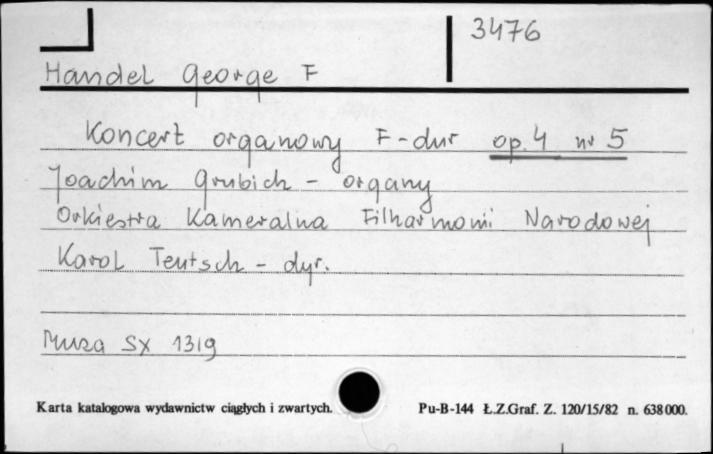 3476
Handel George F
Koncert organowy F-dur op. 4 nr 5
Joachim Grubich - organy
Orkiestra Kameralna Filharmonii Narodowej
Karol Teutsch - dyr.
Muza SX 1319
Karta katalogowa wydawnictw ciągłych i zwartych. Pu-B-144 Ł.Z.Graf. Z. 120/15/82 n. 638000.